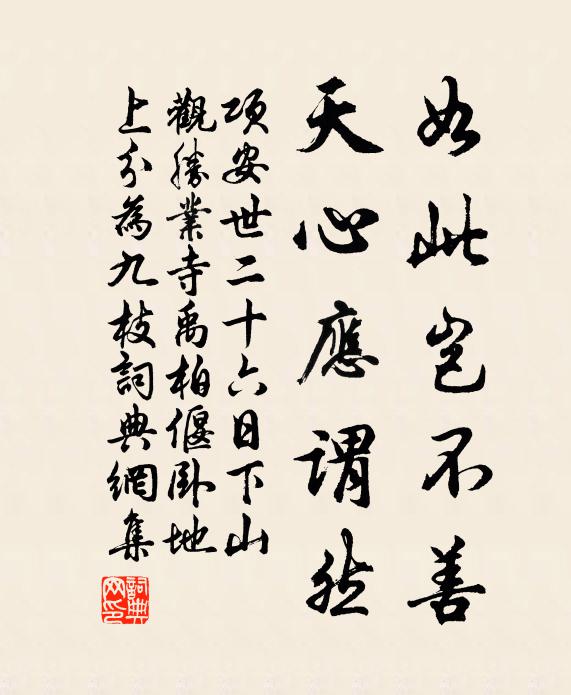 如此豈不善
天心應謂然
項安世二十六日下山
觀勝業寺禹柏偃臥地
上分為九枝詞典網集
詞典網印